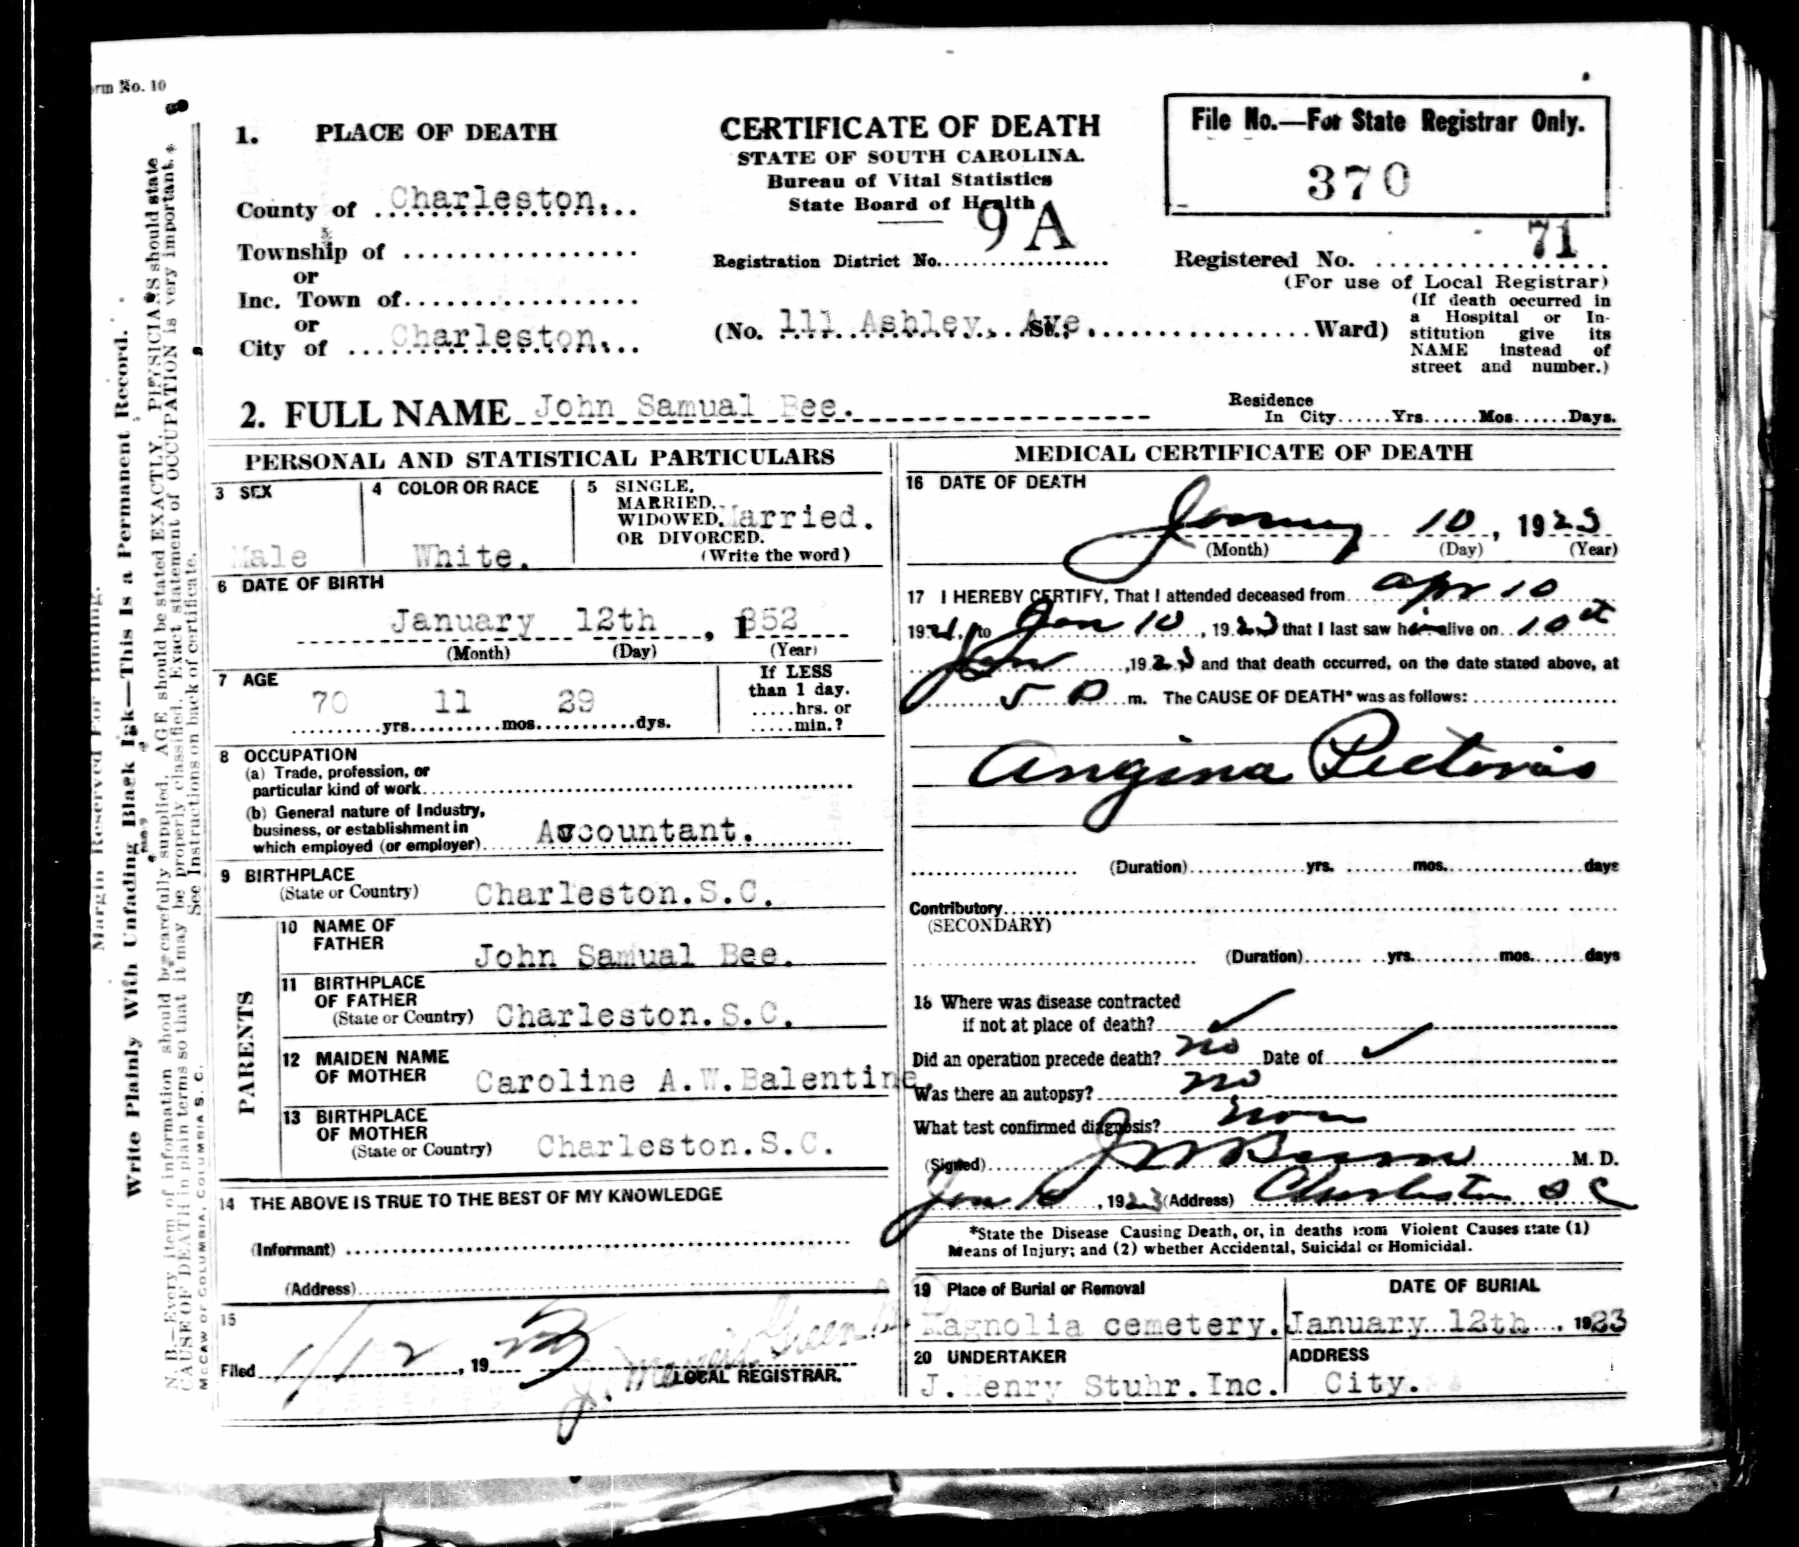 orm No. 10
1. PLACE OF DEATH
County of Charleston.
Township of
or
Inc. Town of
or
City of Charleston.
CERTIFICATE OF DEATH
STATE OF SOUTH CAROLINA.
Bureau of Vital Statistics
State Board of Health
Registration District No. 9A
File No.—For State Registrar Only.
370
Registered No. 71
(For use of Local Registrar)
(No. 111 Ashley, Ave. St.; Ward)
(If death occurred in
a Hospital or In-
stitution give its
NAME instead of
street and number.)
2. FULL NAME John Samual Bee.
Residence
In City......Yrs......Mos......Days.
PERSONAL AND STATISTICAL PARTICULARS
3 SEX
Male
4 COLOR OR RACE
White.
5 SINGLE,
MARRIED,
WIDOWED,
OR DIVORCED.
(Write the word)
Married.
6 DATE OF BIRTH
January 12th, 1852
(Month) (Day) (Year)
7 AGE
70 yrs. 11 mos. 29 dys.
If LESS
than 1 day.
.....hrs. or
.....min.?
8 OCCUPATION
(a) Trade, profession, or
particular kind of work
(b) General nature of Industry,
business, or establishment in
which employed (or employer) Accountant.
9 BIRTHPLACE
(State or Country) Charleston.S.C.
PARENTS
10 NAME OF
FATHER
John Samual Bee.
11 BIRTHPLACE
OF FATHER
(State or Country) Charleston.S.C.
12 MAIDEN NAME
OF MOTHER Caroline A.W.Balentine.
13 BIRTHPLACE
OF MOTHER
(State or Country) Charleston.S.C.
14 THE ABOVE IS TRUE TO THE BEST OF MY KNOWLEDGE
(Informant)
(Address)
15
Filed 1/12, 1923
LOCAL REGISTRAR.
MEDICAL CERTIFICATE OF DEATH
16 DATE OF DEATH
January 10, 1923
(Month) (Day) (Year)
17 I HEREBY CERTIFY, That I attended deceased from Apr 10
1921, to Jan 10, 1923 that I last saw him alive on 10th
Jan, 1923 and that death occurred, on the date stated above, at
5 P m. The CAUSE OF DEATH* was as follows:
Angina Pectoris
(Duration) yrs. mos. days
Contributory
(SECONDARY)
(Duration) yrs. mos. days
18 Where was disease contracted
if not at place of death? ✓
Did an operation precede death? no Date of ✓
Was there an autopsy? no
What test confirmed diagnosis? non
(Signed) M. D.
Jan 10, 1923 (Address) Charleston S C
*State the Disease Causing Death, or, in deaths from Violent Causes state (1)
Means of Injury; and (2) whether Accidental, Suicidal or Homicidal.
19 Place of Burial or Removal
Magnolia cemetery.
DATE OF BURIAL
January 12th. 1923
20 UNDERTAKER
J.Henry Stuhr.Inc.
ADDRESS
City.
Margin Reserved For Binding.
Write Plainly With Unfading Black Ink—This Is a Permanent Record.
N. B.—Every item of information should be carefully supplied. AGE should be stated EXACTLY. PHYSICIANS should state
CAUSE OF DEATH in plain terms so that it may be properly classified. Exact statement of OCCUPATION is very important.
See Instructions on back of certificate.
McCAW OF COLUMBIA, COLUMBIA S. C.